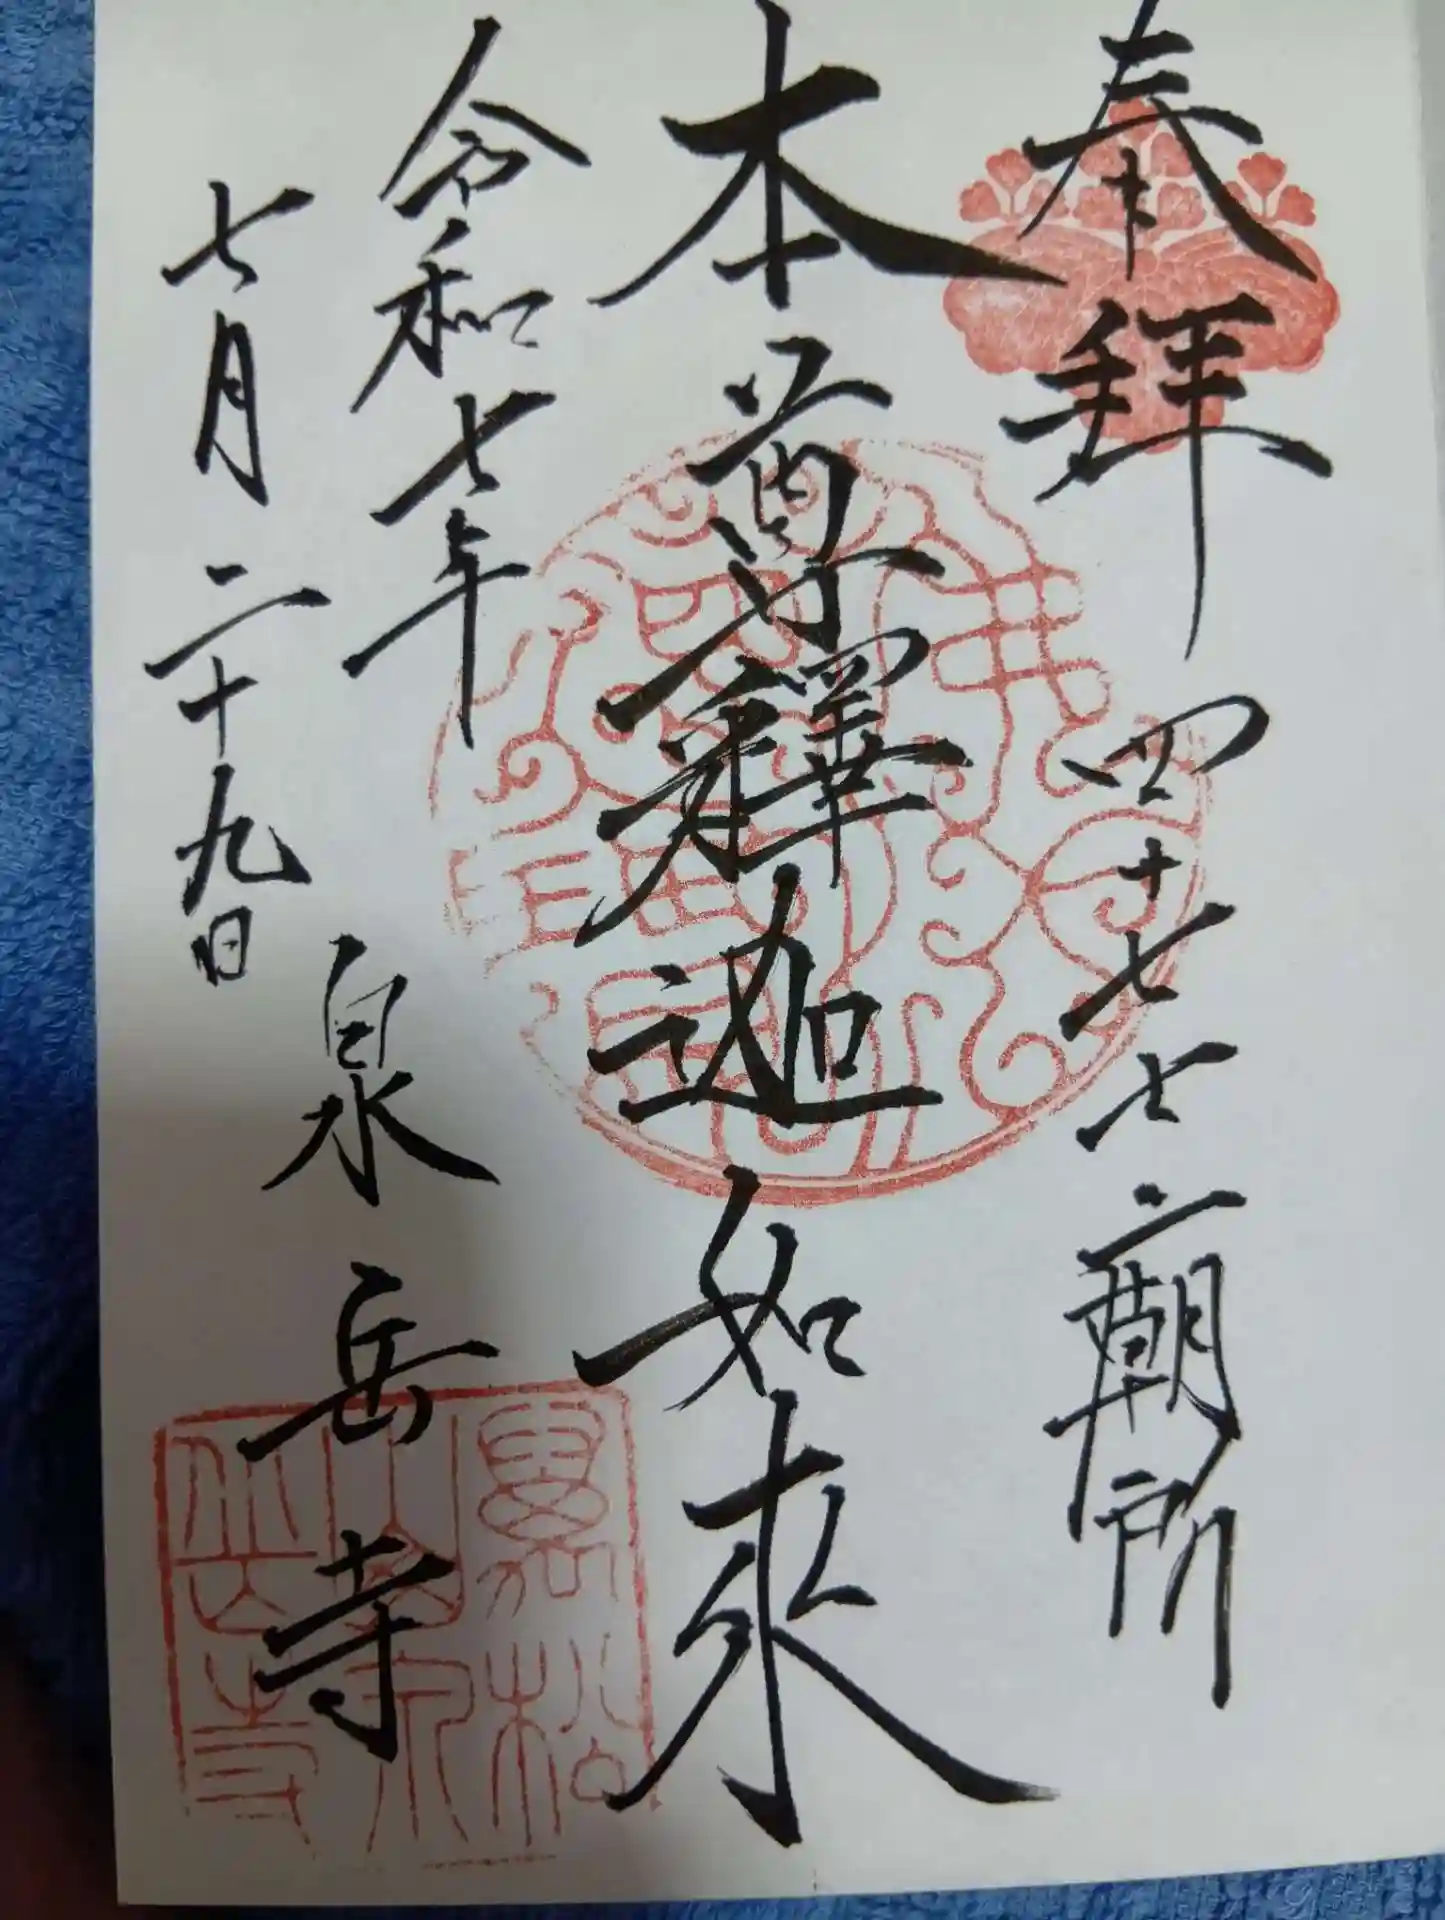 奉拝
四十七士廟所
本尊釋迦如来
令和七年
七月二十九日
泉岳寺